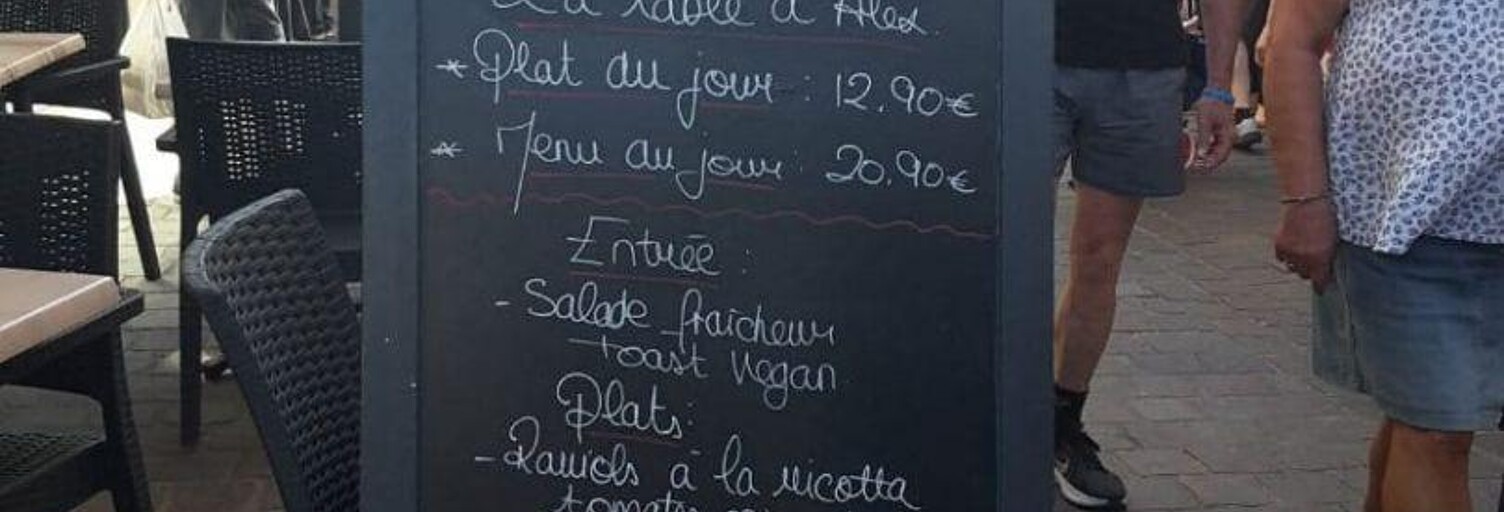 La table d'Alex.
* Plat du jour : 12.90€
* Menu du jour : 20.90€
Entrée :
- Salade fraicheur
Toast Vegan
Plats:
- Raviols à la ricotta
tomates